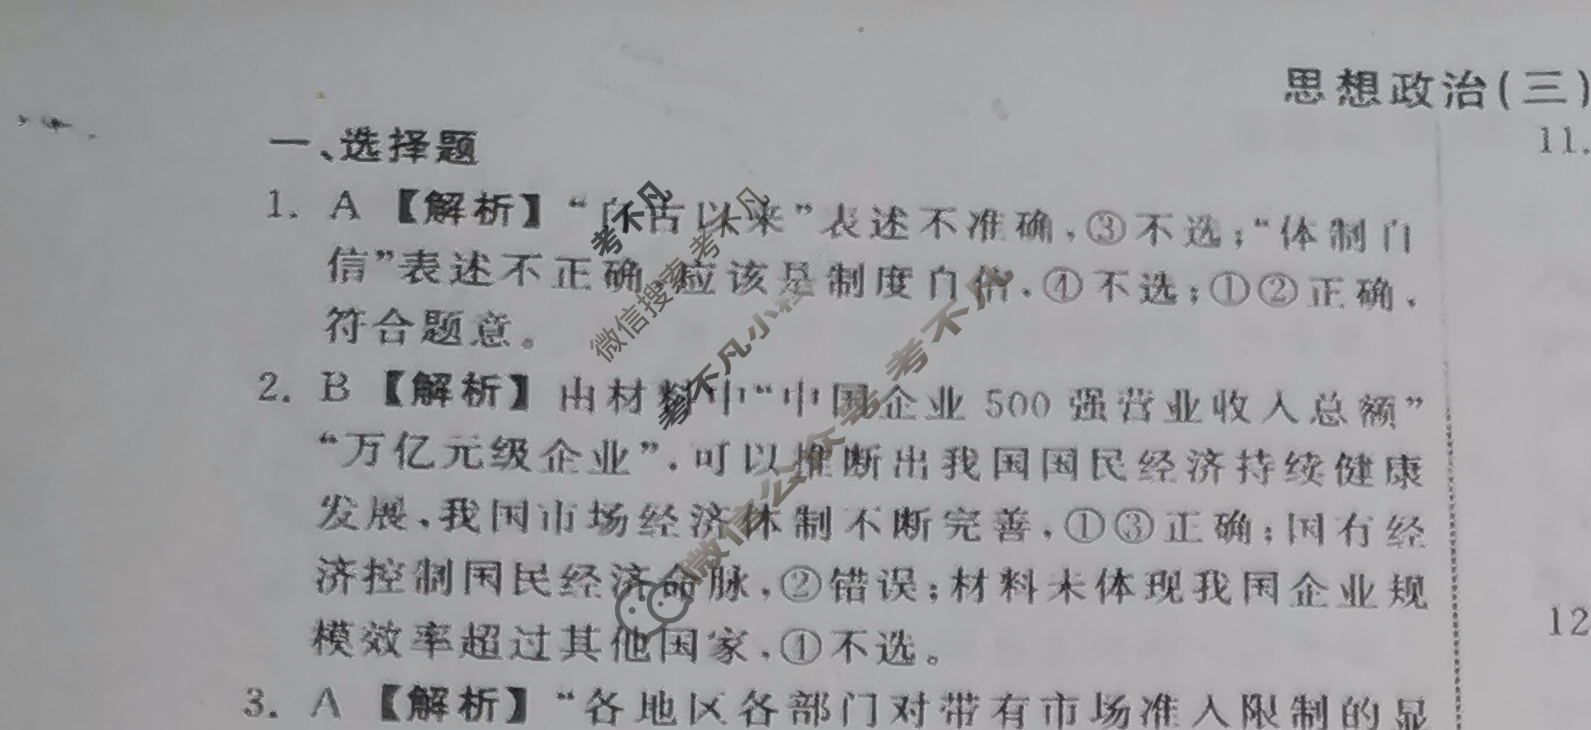 思想政治(三)
一、选择题
1. A 【解析】“自古以来”表述不准确,③不选;“体制自
信”表述不正确,应该是制度自信,④不选;①②正确,
符合题意。
2. B 【解析】由材料中“中国企业 500 强营业收入总额”
“万亿元级企业”,可以推断出我国国民经济持续健康
发展,我国市场经济体制不断完善,①③正确;国有经
济控制国民经济命脉,②错误;材料未体现我国企业规
模效率超过其他国家,④不选。
3. A 【解析】“各地区各部门对带有市场准入限制的显
11.
12
考不凡
微信搜索考不凡
考不凡小程序
微信公众号考不凡